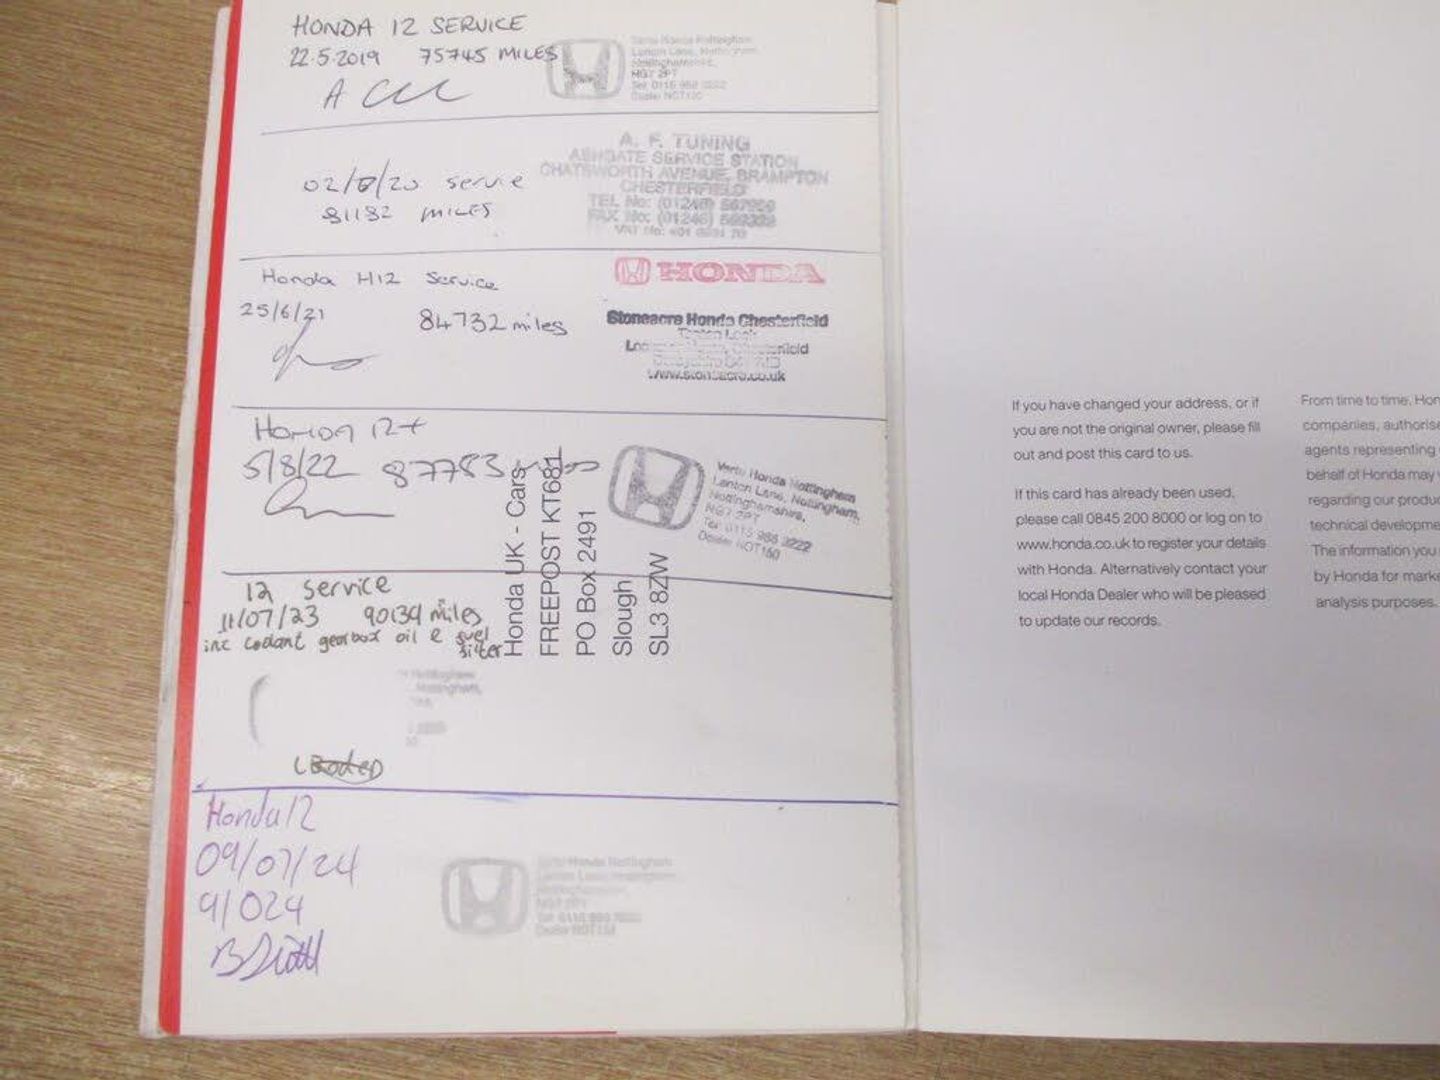 HONDA 12 SERVICE
22.5.2019 75745 MILES
Vertu Honda Nottingham
Lenton Lane, Nottingham
Nottinghamshire,
NG7 2PT
Tel: 0115 986 2222
Dealer NOT150
A. F. TUNING
ASHGATE SERVICE STATION
CHATSWORTH AVENUE, BRAMPTON
CHESTERFIELD
TEL No: (01246)
FAX No: (01246)
VAT No:
02/ /20 service
81182 MILES
Honda H12 Service
25/6/21 84732 miles
HONDA
Stoneacre Honda Chesterfield
Chesterfield
www.stoneacre.co.uk
Honda 12+
5/8/22 87783
Vertu Honda Nottingham
Lenton Lane, Nottingham,
Nottinghamshire,
NG7 2PT
Tel: 0115 986 2222
Dealer NOT150
Honda UK - Cars
FREEPOST KT681
PO Box 2491
Slough
SL3 8ZW
12 Service
11/07/23 90134 miles
inc coolant gearbox oil & fuel
filter
Nottingham
Nottingham,
Honda 12
09/07/24
91024
Vertu Honda Nottingham
Lenton Lane, Nottingham
Nottinghamshire
NG7 2PT
Dealer NOT150
If you have changed your address, or if
you are not the original owner, please fill
out and post this card to us.
If this card has already been used,
please call 0845 200 8000 or log on to
www.honda.co.uk to register your details
with Honda. Alternatively contact your
local Honda Dealer who will be pleased
to update our records.
From time to time, Hon
companies, authorise
agents representing
behalf of Honda may
regarding our produc
technical developme
The information you
by Honda for marke
analysis purposes.